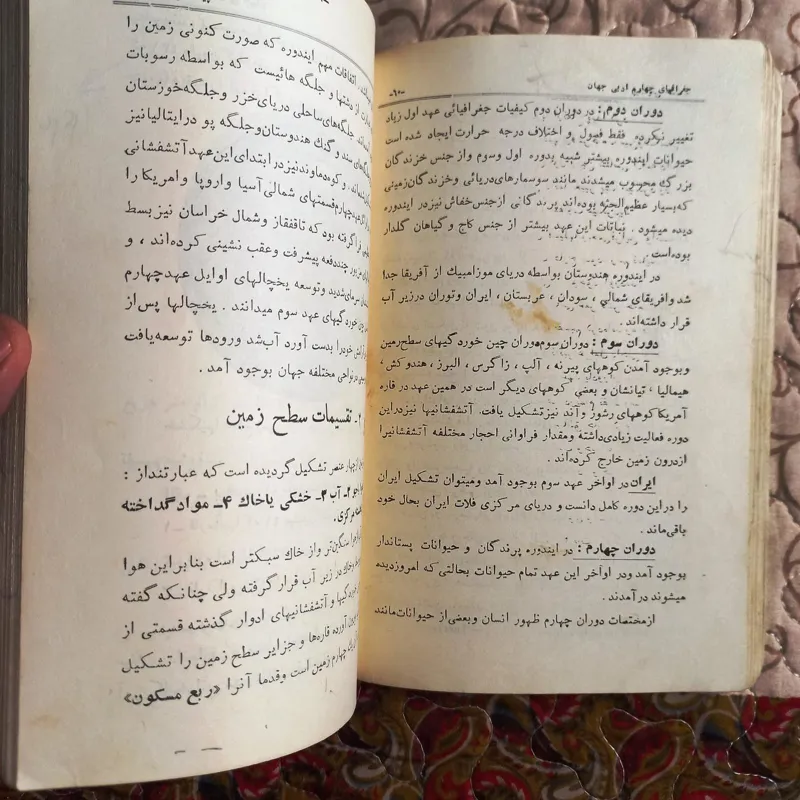 جغرافیای چهارم ادبی جهان
ـ۶۰ـ
دوران دوم : در دوران دوم کیفیات جغرافیائی عهد اول زیاد
تغییر نکرده فقط فصول و اختلاف درجه حرارت ایجاد شده است
حیوانات ایندوره بیشتر شبیه بدوره اول وسوم واز جنس خزندگان
بزرگ محسوب میشدند مانند سوسمارهای دریائی وخزندگان زمینی
که بسیار عظیم‌الجثه بوده‌اند پرندگانی ازجنس خفاش نیز در ایندوره
دیده میشود . نباتات این عهد بیشتر از جنس کاج و گیاهان گلدار
بوده‌است
در ایندوره هندوستان بواسطه دریای موزامبیک از آفریقا جدا
شد وافریقای شمالی ، سودان ، عربستان ، ایران وتوران درزیر آب
قرار داشته‌اند .
دوران سوم : دوران سوم دوران چین خوردگیهای سطح زمین
وبوجود آمدن کوههای پیرنه ، آلپ ، زاگرس ، البرز ، هندوکش ،
هیمالیا ، تیانشان و بعضی کوههای دیگر است در همین عهد در قاره
آمریکا کوههای رشوز وآند نیز تشکیل یافت . آتشفشانیها نیز دراین
دوره فعالیت زیادی داشته ومقدار فراوانی احجار مختلفه آتشفشانیرا
ازدرون زمین خارج کرده‌اند .
ایران در اواخر عهد سوم بوجود آمد ومیتوان تشکیل ایران
را دراین دوره کامل دانست و دریای مرکزی فلات ایران بحال خود
باقی‌ماند .
دوران چهارم : در ایندوره پرندگان و حیوانات پستاندار
بوجود آمد ودر اواخر این عهد تمام حیوانات بحالتی که امروز دیده
میشوند درآمدند .
ازمختصات دوران چهارم ظهور انسان وبعضی از حیوانات مانند
اتفاقات مهم ایندوره که صورت کنونی زمین را
از دشتها و جلگه هائیست که بواسطه رسوبات
جلگه‌های ساحلی دریای خزر وجلگه خوزستان
سند و گنگ هندوستان وجلگه پو در ایتالیا نیز
و کوه دماوند نیز در ابتدای این عهد آتشفشانی
چهارم قسمتهای شمالی آسیا و اروپا وامریکا را
فرا گرفته بود که تا قفقاز وشمال خراسان نیز بسط
چند دفعه پیشرفت وعقب نشینی کرده‌اند ، و
سرمای شدید وتوسعه یخچالهای اوایل عهد چهارم
خوردگیهای عهد سوم میدانند . یخچالها پس از
خود را بدست آورد آب شد ورودها توسعه یافت
در نواحی مختلفه جهان بوجود آمد .
۲ـ تقسیمات سطح زمین
چهار عنصر تشکیل گردیده است که عبارتند از :
۲ـ آب ۳ـ خشکی یا خاک ۴ـ مواد گداخته
مرکزی .
سنگین‌تر واز خاک سبکتر است بنابراین هوا
در زیر آب قرار گرفته ولی چنانکه گفته
و آتشفشانیهای ادوار گذشته قسمتی از
آورده قاره‌ها و جزایر سطح زمین را تشکیل
چهارم زمین است وقدما آنرا «ربع مسکون»